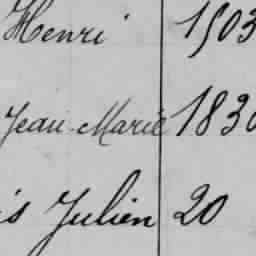 Henri 1503
Jean-Marie 1830
is Julien 20